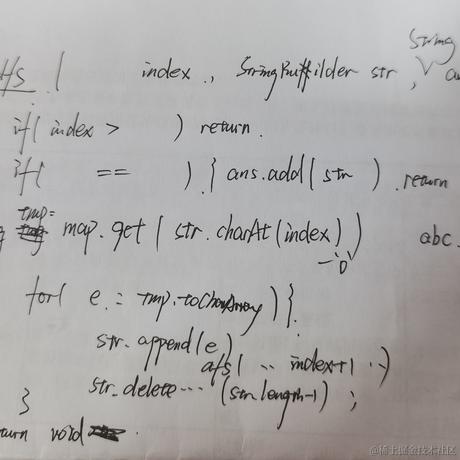 String
dfs ( index , StringBuilder str , an
if( index > ) return .
if( == ) { ans.add( str ) . return
tmp=
map.get ( str.charAt(index) ) abc .
-'0'
for( e := tmp.toCharArray ) {
str.append(e)
dfs( .. index+1 .. )
str.delete ... (str.length-1) ;
}
turn void .
@稀土掘金技术社区